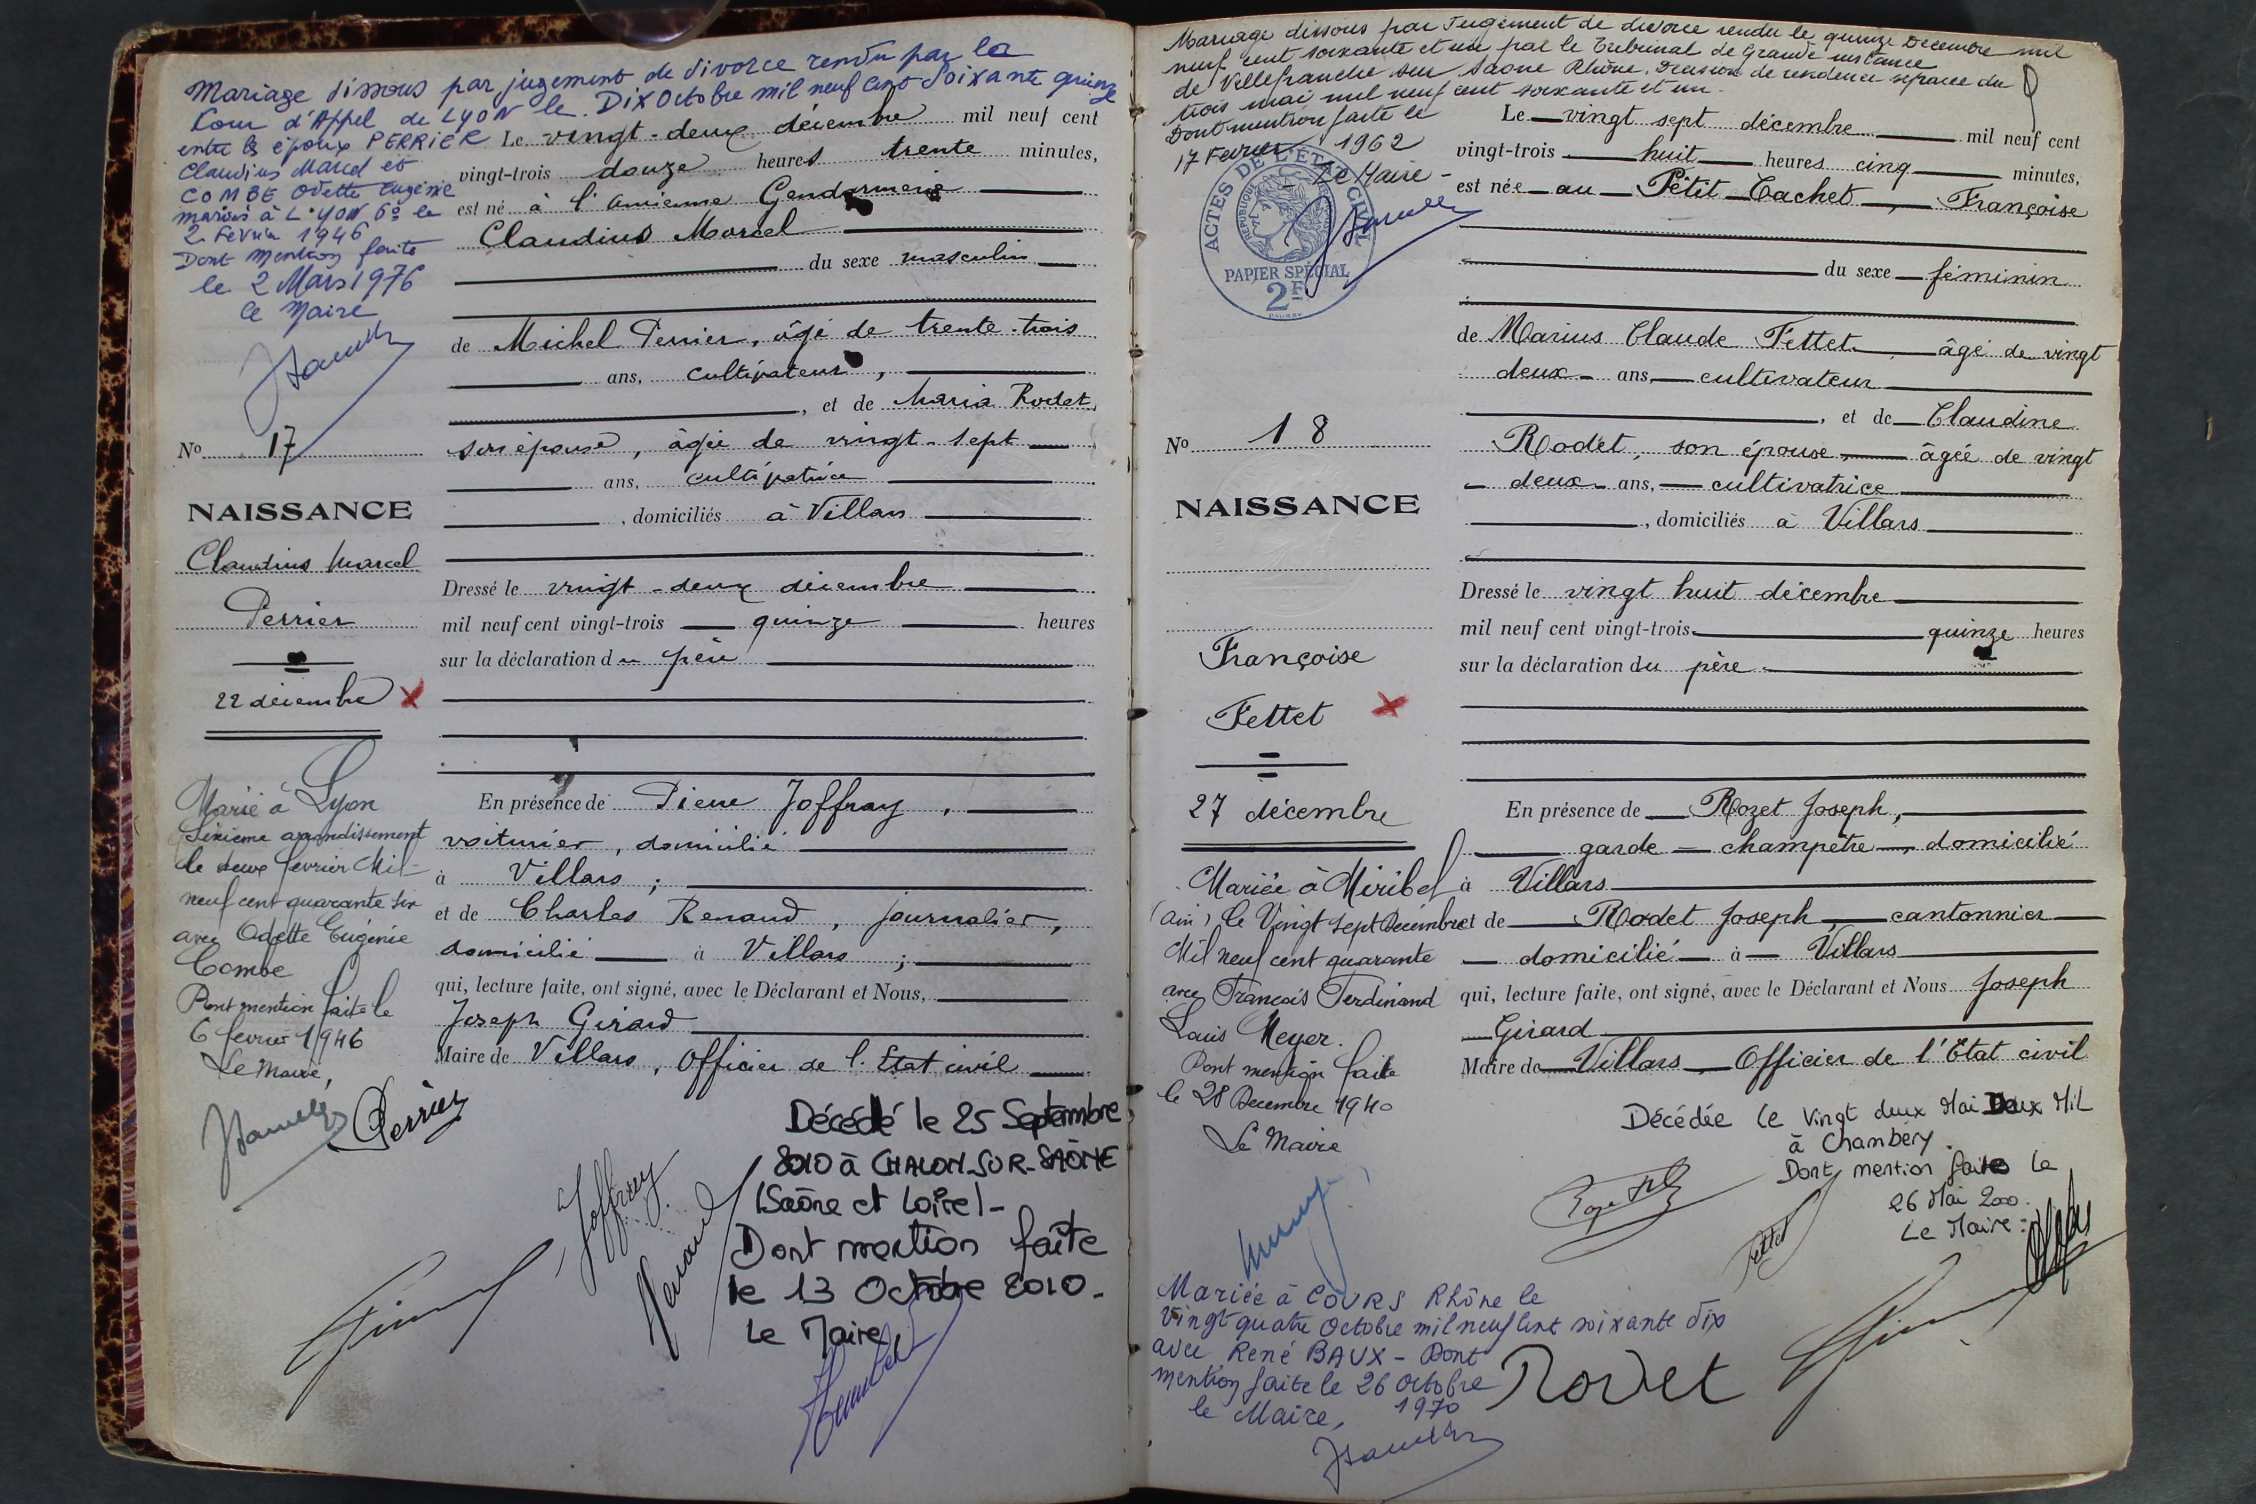 Mariage dissous par jugement de divorce rendu par la
Cour d'Appel de LYON le Dix Octobre mil neuf cent soixante quinze
entre les époux PERRIER
Claudius Marcel et
COMBE Odette Eugénie
mariés à LYON 6e le
2 Février 1946
Dont mention faite
le 2 Mars 1976
le Maire
No 17
NAISSANCE
Claudius Marcel
Perrier
22 décembre
Marié à Lyon
Sixième arrondissement
le deux février Mil
neuf cent quarante six
avec Odette Eugénie
Combe
Dont mention faite le
6 février 1946
Le Maire,
Le vingt-deux décembre mil neuf cent
vingt-trois douze heures trente minutes,
est né à l'ancienne Gendarmerie
Claudius Marcel
du sexe masculin
de Michel Perrier, âgé de trente-trois
ans, cultivateur,
, et de Maria Rodet
son épouse, âgée de vingt-sept
ans, cultivatrice
, domiciliés à Villars
Dressé le vingt-deux décembre
mil neuf cent vingt-trois quinze heures
sur la déclaration du père
En présence de Pierre Joffray,
voiturier, domicilié
à Villars ;
et de Charles Renaud, journalier,
domicilié à Villars ;
qui, lecture faite, ont signé, avec le Déclarant et Nous,
Joseph Girard
Maire de Villars, Officier de l'Etat civil
Perrier
Joffray
Renaud
Décédé le 25 Septembre
2010 à CHALON-SUR-SAÔNE
(Saône et Loire)-
Dont mention faite
le 13 Octobre 2010-
Le Maire,
Mariage dissous par Jugement de divorce rendu le quinze Décembre mil
neuf cent soixante et un par le Tribunal de Grande instance
de Villefranche sur Saone Rhône. Décision de résidence séparée du
trois mai mil neuf cent soixante et un.
Dont mention faite le
17 Fevrier 1962
- Le Maire -
ACTES DE L'ETAT CIVIL
PAPIER SPÉCIAL
2F
No 18
NAISSANCE
Françoise
Fettet
27 décembre
Mariée à Miribel
(Ain) le Vingt sept Décembre
Mil neuf cent quarante
avec François Ferdinand
Louis Meyer.
Dont mention faite
le 28 Décembre 1940
Le Maire
Le vingt sept décembre mil neuf cent
vingt-trois huit heures cinq minutes,
est née au Petit Cachet, Françoise
du sexe féminin
de Marius Claude Fettet âgé de vingt
deux ans, cultivateur
, et de Claudine
Rodet, son épouse, âgée de vingt
deux ans, cultivatrice
, domiciliés à Villars
Dressé le vingt huit décembre
mil neuf cent vingt-trois quinze heures
sur la déclaration du père
En présence de Rozet Joseph,
garde-champêtre, domicilié
à Villars
et de Rodet Joseph, cantonnier
domicilié à Villars
qui, lecture faite, ont signé, avec le Déclarant et Nous Joseph
Girard
Maire de Villars, Officier de l'Etat civil
Décédée le Vingt deux Mai Deux Mil
à Chambéry.
Dont mention faite le
26 Mai 2000.
Le Maire :
Fettet
Mariée à COURS Rhône le
Vingt quatre Octobre mil neuf cent soixante dix
avec René BAUX - Dont
mention faite le 26 octobre
1970
le Maire,
Rodet